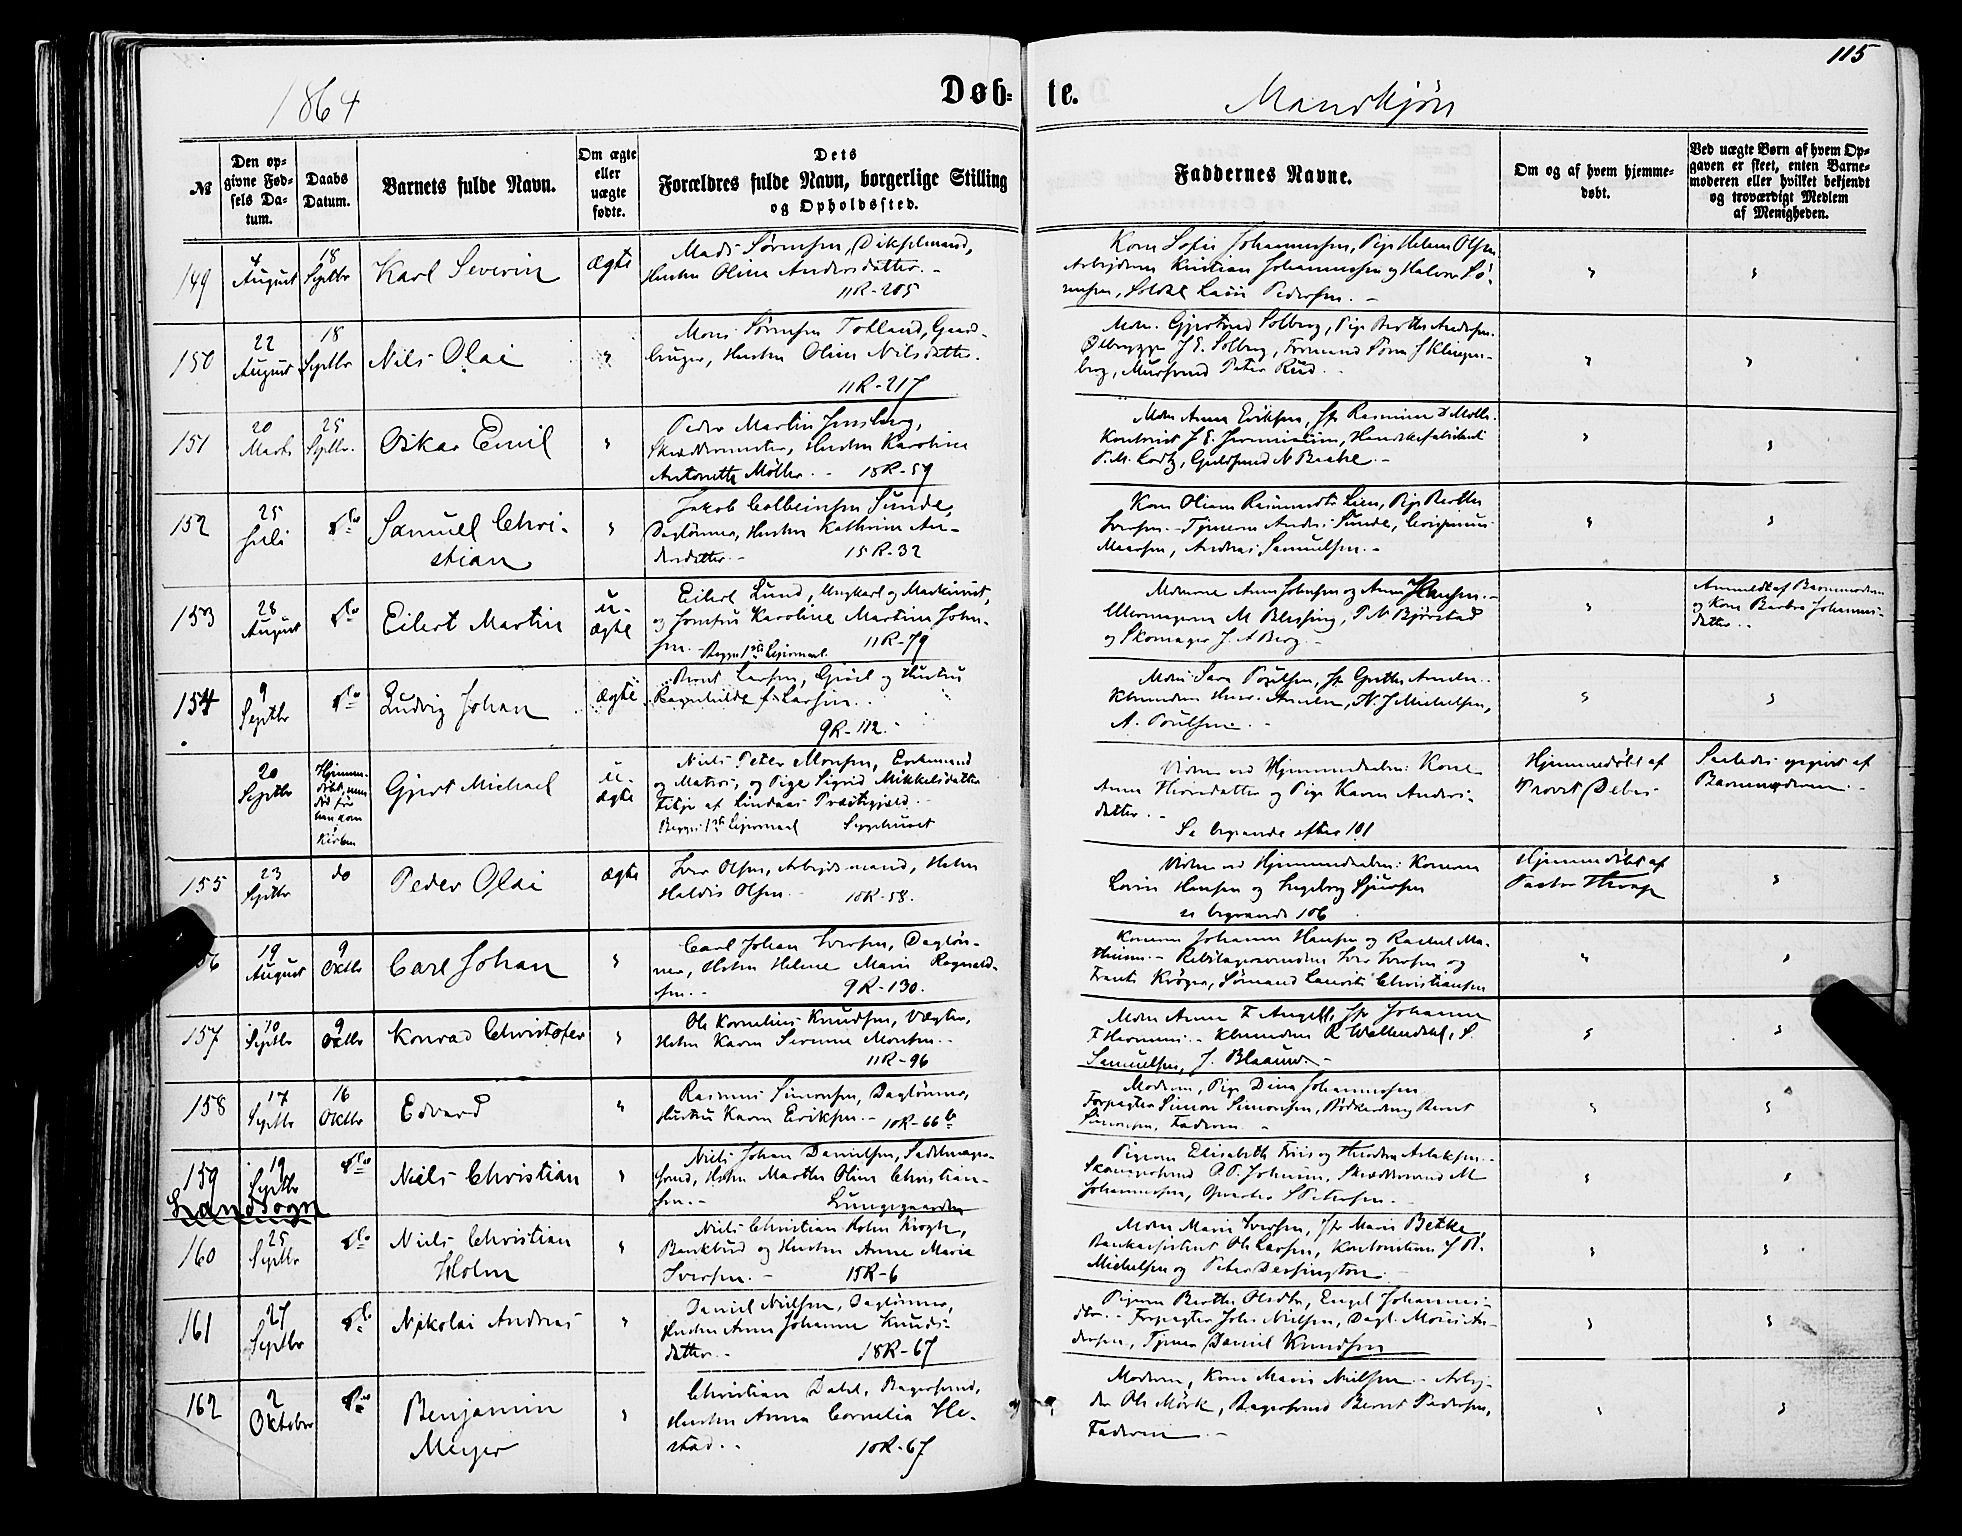 115
1864
Døb-
te.
Mandkjøn
№
Den op-
givne Fød-
sels Da-
tum.
Daabs
Datum.
Barnets fulde Navn.
Om ægte
eller
uægte
fødte.
Dets
Forældres fulde Navn, borgerlige Stilling
og Opholdssted.
Faddernes Navne.
Om og af hvem hjemme-
døbt.
Ved uægte Børn af hvem Op-
gaven er skeet, enten Barne-
moderen eller hvilket bekjendt
og troværdigt Medlem
af Menigheden.
149
4
August
18
Septbr
Karl Severin
ægte
Mads Sørensen,
Hustru Oline Andersdatter. -
11R-205
Kone Sofie Johannessen, Pige Helene Olsen
Arbeiderne Kristian Johannessen og Halvor Sø-
rensen, Soldat Lars Pedersen. -
150
22
August
18
Septbr
Nils Olai
"
Mons Sørensen Totland, Gaard-
bruger, Hustru Oline Nilsdatter.
11R-217
Mdm. Gjertrud Solberg, Pige Berthe Andersen.
Ølbrygger J E. Solberg, Formand
Peter Rud. -
151
20
Marts
25
Septbr.
Oskar Emil
"
Peder Martin Jensberg,
Skræddermester, Hustru Karoline
Antonette Møller. - 18R-59
Mdm Anna Eriksen, Jfr Rasmine D Møller.
Kontorist J. E. Handskefabrikant
P. M. Guldsmed N Brekke. -
152
25
Juli
do
Samuel Chri-
stian
"
Jakob Colbeinsen Sunde,
Dagløner, Hustru Kathrine An-
dersdatter. - 15R-32
Kone Oliane Rasmusdtr Lien, Pige Berthe
Iversen. - Tjenerne Anders Sunde,
Andreas Samuelsen. -
153
28
August
do
Eilert Martin
u-
ægte
Eilert Lund, Ungkarl og Maskinist,
og Jomfru Karoline Martine John-
sen. - Begges 1ste Leiermaal. 11R-79
Madamerne Anne Johnsen og Anne Hansen. -
Uhrmagerne M Blessing, P. N Bjørstad
og Skomager J. A Berg. -
Anmeldt af Barnemoderen
og Kone Barbra Johannes-
datter. -
154
9
Septbr
do
Ludvig Johan
ægte
Bernt Larsen, Gjørtl. og Hustru
Ragnhilde f. Larsen. -
9R-112.
Mdm: Sara Poulsen, Jfr Grethe Ameln.
Kbmændene Henr. Ameln, N. J Michelsen,
A. Poulsen. -
20
Septbr
Hjemme-
døbt, men
død før
han kom
i
Kirken
Gjert Michael
u-
ægte
Niels Peter Monsen, Enkemand
og Matros, og Pige Sigrid Mikkelsdatter
af Lindaas Præstegjeld. -
Begges 1ste Leiermaal Sygehuset
Vidner ved Hjemmedaaben: Kone
Anna Thoresdatter og Pige Karen Anders-
datter. -
Se begravede efter 101
Hjemmedøbt af
Provst Debes
Saaledes opgivet af
Barnemoderen. -
155
23
Septbr
do
Peder Olai
ægte
Iver Olsen, Arbeidsmand, Hustru
Haldis Olsen. - 10R-58.
Vidner ved Hjemmedaaben: Konerne
Lovise Hansen og Ingeborg Sjursen
se begravede 106
Hjemmedøbt af
Pastor Thrap
"
19
August
9
Oktbr
Carl Johan
"
Carl Johan Iversen, Dagløn-
ner, Hustru Helene Marie Ragnald-
sen. - 9R-130.
Konerne Johanne Hansen og Rachel Ma-
thiesen. - Rebslagersvendene Iver Iversen og
Frants Krøger, Sømand Lauritz Christiansen
157
10
Septbr
9
Oktbr
Konrad Christofer
"
Ole Kornelius Knudsen, Vægter,
Hustru Karen Severine Monsen. -
11R-96
Mdm Anna F Angell, Jfr Johanne
F Hermans. - Kbmændene R. Wallendahl, S.
Samuelsen, J. Blaauw. -
158
17
Septbr
16
Oktbr
Edvard
"
Rasmus Simonsen, Dagløner,
Hustru Karen Eriksen. - 10R-66b
Moderen, Pige Dina Johannessen
Forpagter Simon Simonsen, Bødkerdreng Bernt
Simonsen, Faderen. -
159
19
Septbr
do
Niels Christian
"
Niels Johan Danielsen, Sadelmager-
svend, Hustru Marthe Oline Christian-
sen. - Lungegaarden
Pigerne Elisabeth Friis og Theodora Aslaksen. -
Skomagersvend P. P. Johnsen, Skræddersvend M
Johannessen, S Petersen. -
Landsogn
160
25
Septbr
do
Niels Christian
Holm
"
Niels Christian Holm Krogh,
Bankbud og Hustru Anne Marie
Iversen. - 15R-6
Mdm Marie Iversen, Jfr Marie Betke,
Bankassistent Ole Larsen, Kontoristerne J. R.
Michelsen og Peter Dessington. -
161
27
Septbr
do
Nikolai Andreas
"
Daniel Nielsen, Dagløner,
Hustru Anne Johanne Knuds-
datter. - 18R-67
Pigerne Berthe Olsdtr, Engel Johannes-
dtr. - Forpagter Johs Nielsen, Dagl. Mons An-
dersen, Tjener Daniel Knudsen
162
2
Oktober
do
Benjamin
Meyer
"
Christian Dahl, Bagersvend,
Hustru Anna Cornelia He-
stad. - 10R-67
Moderen, Kone Marie Nielsen - Arbei-
der Ole Mørk, Bagersvend Bernt Pedersen,
Faderen. -